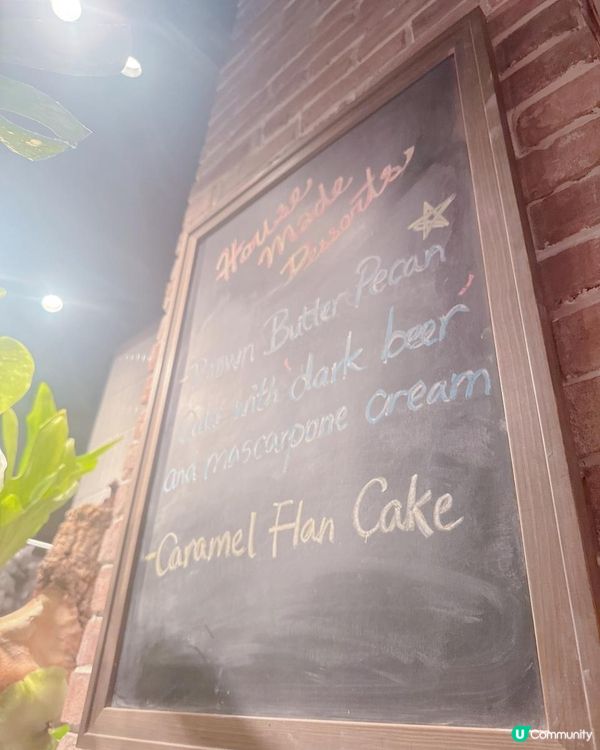 House
Made
Desserts
-Brown Butter Pecan
Cake with dark beer
and mascarpone cream
-Caramel Flan Cake
U Community